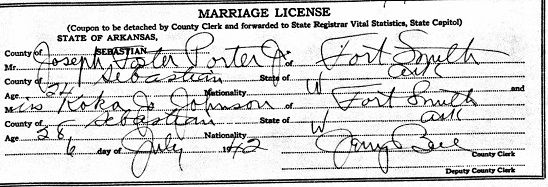 MARRIAGE LICENSE
(Coupon to be detached by County Clerk and forwarded to State Registrar Vital Statistics, State Capitol)
STATE OF ARKANSAS,
County of SEBASTIAN
Mr. Joseph Foster Porter Jr. of Fort Smith
County of Sebastian State of Ark
Age 24 Nationality W and
Miss Roka Jo Johnson of Fort Smith
County of Sebastian State of Ark
Age 28 Nationality W
6 day of July 1942
County Clerk
Deputy County Clerk